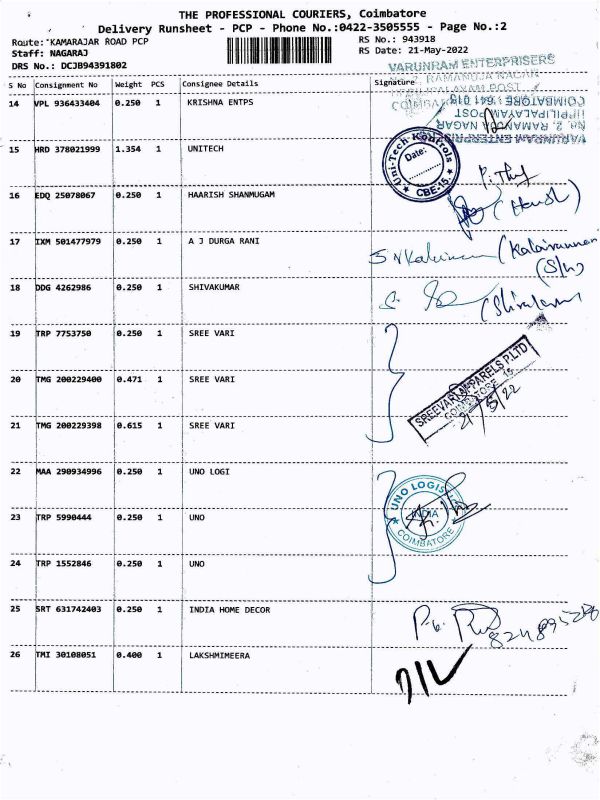 THE PROFESSIONAL COURIERS, Coimbatore
Delivery Runsheet - PCP - Phone No.:0422-3505555 - Page No.:2
Route: KAMARAJAR ROAD PCP
RS No.: 943918
Staff: NAGARAJ
RS Date: 21-May-2022
DRS No.: DCJB94391802
VARUNRAM ENTERPRISERS
S No Consignment No Weight PCS Consignee Details Signature
14 VPL 936433404 0.250 1 KRISHNA ENTPS
COIMBATORE 641 015
UPPILIPALAYAM POST
No. 2, RAMANUJA NAGAR
VARUNRAM ENTERPRISERS
15 HRD 378021999 1.354 1 UNITECH
Uni-Tech Kontrols
Date:
CBE-15
16 EDQ 25078067 0.250 1 HAARISH SHANMUGAM
17 IXM 501477979 0.250 1 A J DURGA RANI
(S/n)
18 DDG 4262986 0.250 1 SHIVAKUMAR
19 TRP 7753750 0.250 1 SREE VARI
20 TMG 200229400 0.471 1 SREE VARI
SREEVARI APPARELS P.LTD
COIMBATORE 15
21/5/22
21 TMG 200229398 0.615 1 SREE VARI
22 MAA 290934996 0.250 1 UNO LOGI
UNO LOGIS
INDIA
COIMBATORE
23 TRP 5990444 0.250 1 UNO
24 TRP 1552846 0.250 1 UNO
25 SRT 631742403 0.250 1 INDIA HOME DECOR
26 TMI 30108051 0.400 1 LAKSHMIMEERA
D/L